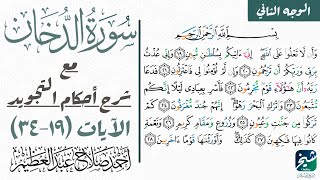 الوجه الثاني
سورة الدخان
مع
شرح أحكام التجويد
الآيات (١٩-٣٤)
أحمد صلاح عبد العظيم
بسم الله الرحمن الرحيم
وَأَن لَّا تَعْلُوا۟ عَلَى ٱللَّهِ إِنِّىٓ ءَاتِيكُم بِسُلْطَٰنٍ مُّبِينٍ ١٩ وَإِنِّى عُذْتُ
بِرَبِّى وَرَبِّكُمْ أَن تَرْجُمُونِ ٢٠ وَإِن لَّمْ تُؤْمِنُوا۟ لِى فَٱعْتَزِلُونِ ٢١ فَدَعَا
رَبَّهُۥٓ أَنَّ هَٰٓؤُلَآءِ قَوْمٌ مُّجْرِمُونَ ٢٢ فَأَسْرِ بِعِبَادِى لَيْلًا إِنَّكُم
مُّتَّبَعُونَ ٢٣ وَٱتْرُكِ ٱلْبَحْرَ رَهْوًا إِنَّهُمْ جُندٌ مُّغْرَقُونَ ٢٤ كَمْ
تَرَكُوا۟ مِن جَنَّٰتٍ وَعُيُونٍ ٢٥ وَزُرُوعٍ وَمَقَامٍ كَرِيمٍ ٢٦ وَنَعْمَةٍ
كَانُوا۟ فِيهَا فَٰكِهِينَ ٢٧ كَذَٰلِكَ وَأَوْرَثْنَٰهَا قَوْمًا ءَاخَرِينَ ٢٨